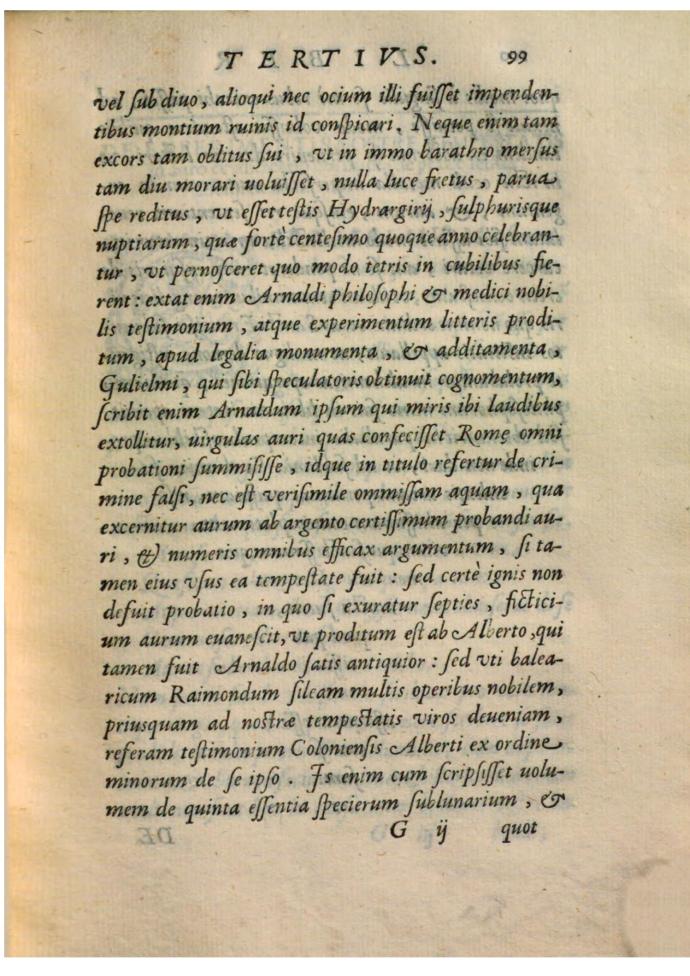 TERTIVS. 99
vel ſub diuo, alioqui nec ocium illi fuiſſet impenden-
tibus montium ruinis id conſpicari. Neque enim tam
excors tam oblitus ſui, vt in immo barathro merſus
tam diu morari uoluiſſet, nulla luce fretus, parua
ſpe reditus, vt eſſet teſtis Hydrargirij, ſulphuriſque
nuptiarum, quæ fortè centeſimo quoque anno celebran-
tur, vt pernoſceret quo modo tetris in cubilibus fie-
rent: extat enim Arnaldi philoſophi & medici nobi-
lis teſtimonium, atque experimentum litteris prodi-
tum, apud legalia monumenta, & additamenta,
Gulielmi, qui ſibi ſpeculatoris obtinuit cognomentum,
ſcribit enim Arnaldum ipſum qui miris ibi laudibus
extollitur, uirgulas auri quas confeciſſet Romę omni
probationi ſummiſiſſe, idque in titulo refertur de cri-
mine falſi, nec eſt veriſimile ommiſſam aquam, qua
excernitur aurum ab argento certiſſimum probandi au-
ri, & numeris omnibus efficax argumentum, ſi ta-
men eius vſus ea tempeſtate fuit: ſed certè ignis non
defuit probatio, in quo ſi exuratur ſepties, fictici-
um aurum euaneſcit, vt proditum eſt ab Alberto, qui
tamen fuit Arnaldo ſatis antiquior: ſed vti balea-
ricum Raimondum ſileam multis operibus nobilem,
priusquam ad noſtræ tempeſtatis viros deueniam,
referam teſtimonium Colonienſis Alberti ex ordine
minorum de ſe ipſo. Is enim cum ſcripſiſſet uolu-
mem de quinta eſſentia ſpecierum ſublunarium, &
G ij quot